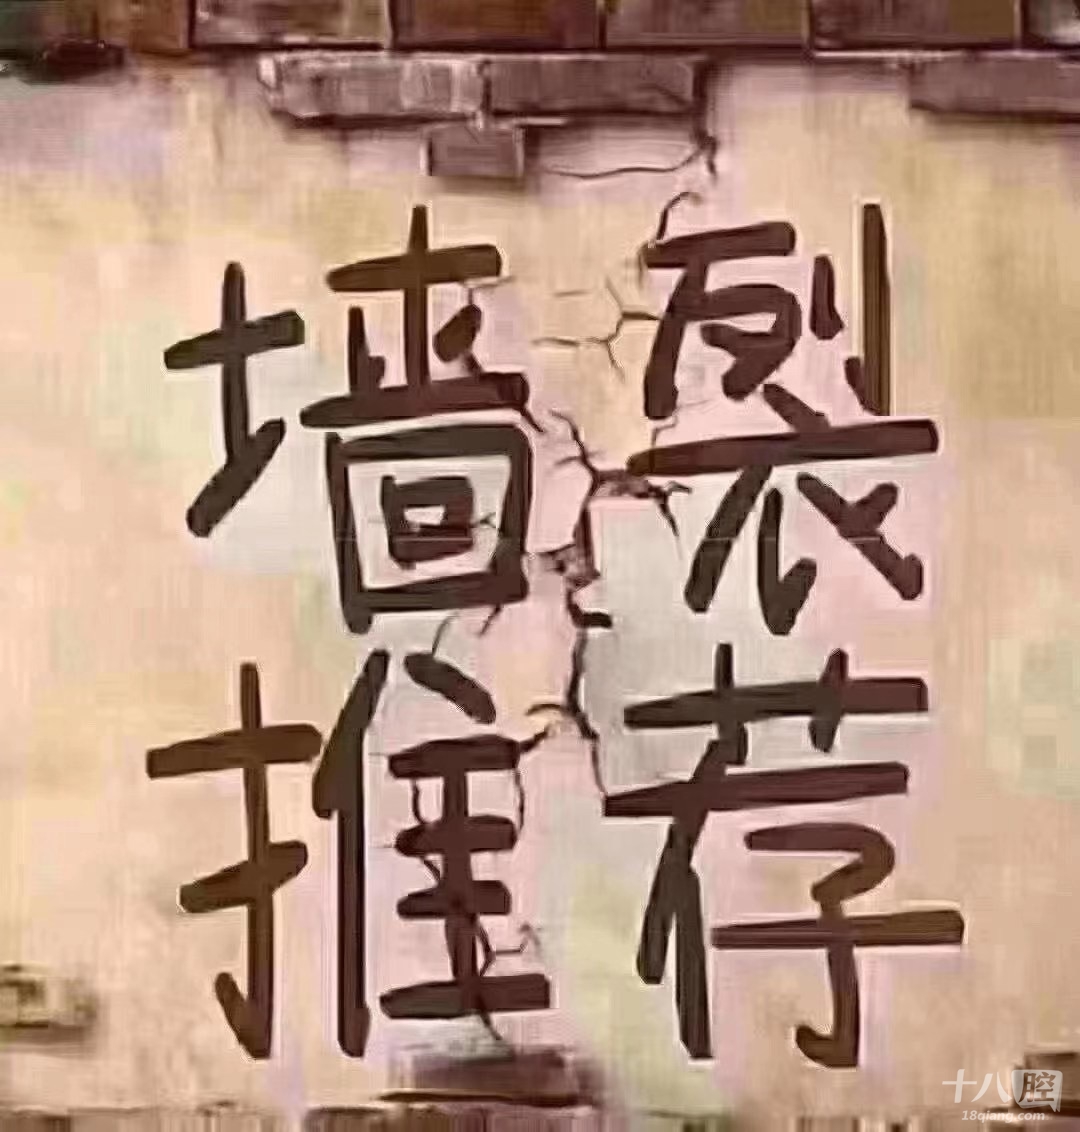 墙裂
推荐
十八腔
18qiang.com